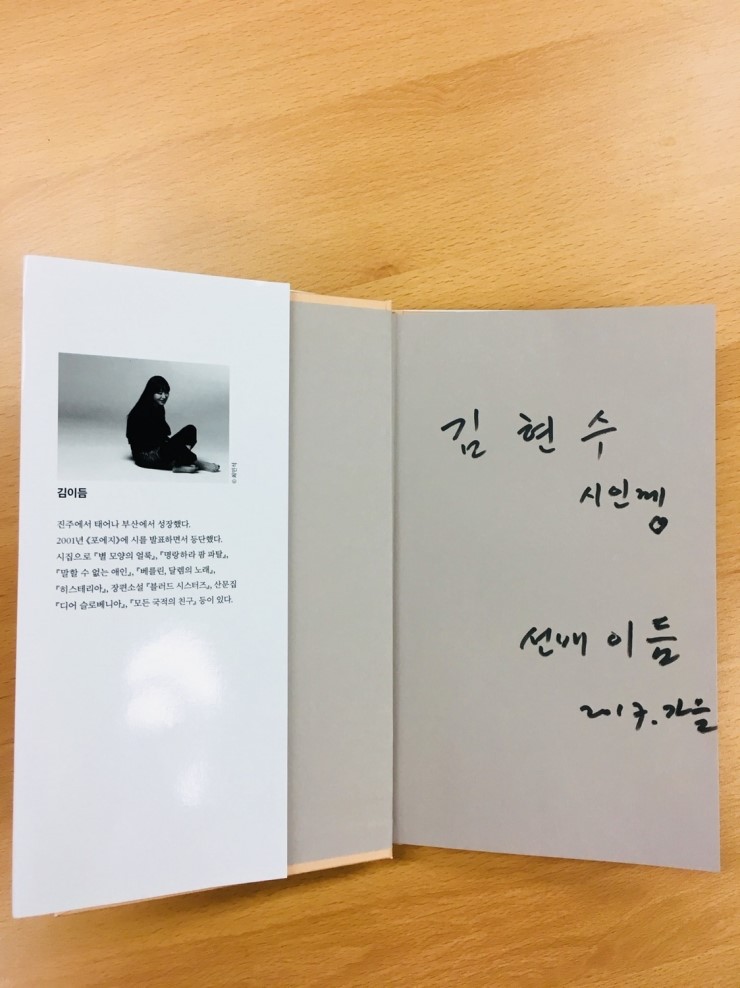 © 최민석
김이듬
진주에서 태어나 부산에서 성장했다.
2001년 《포에지》에 시를 발표하면서 등단했다.
시집으로 『별 모양의 얼룩』, 『명랑하라 팜 파탈』,
『말할 수 없는 애인』, 『베를린, 달렘의 노래』,
『히스테리아』, 장편소설 『블러드 시스터즈』, 산문집
『디어 슬로베니아』, 『모든 국적의 친구』 등이 있다.
김 현 수
시인께
선배 이듬
2017. 가을